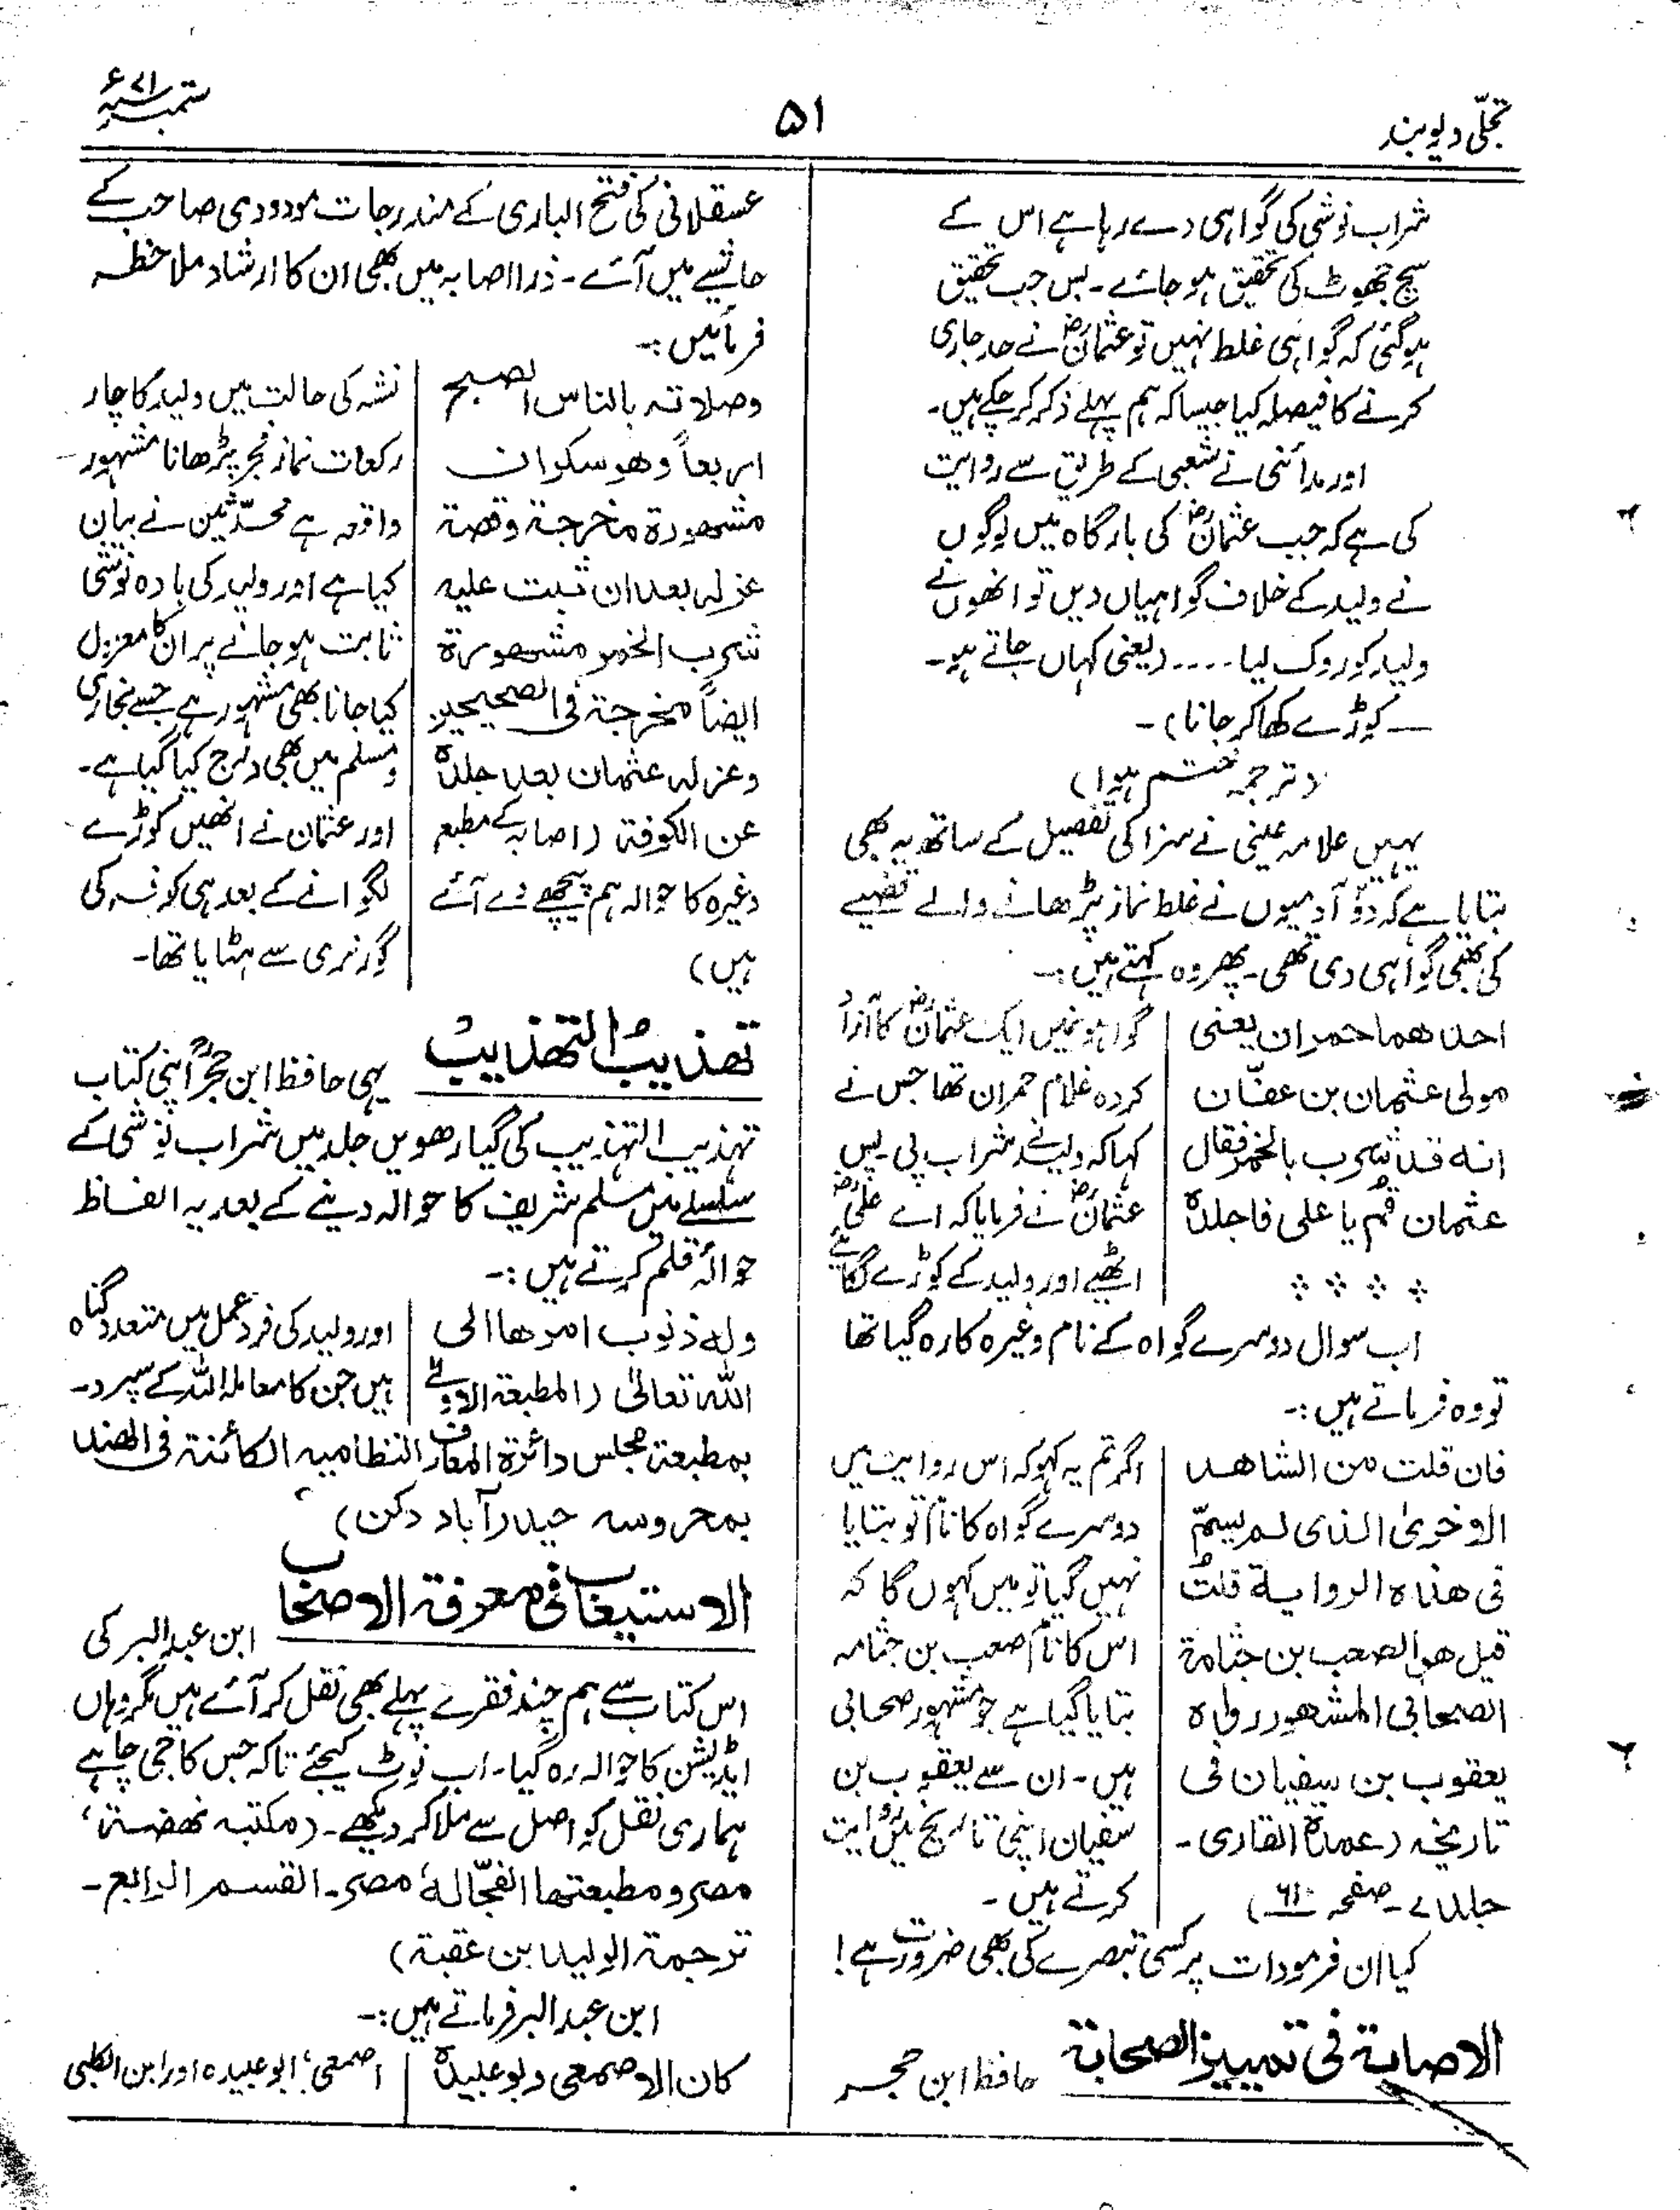 تجلّی دیوبند
۵۱
ستمبر ۷۱ء
شراب نوشی کی گواہی دے رہا ہے اس کے
سچ جھوٹ کی تحقیق ہو جائے۔ بس جب تحقیق
ہو گئی کہ گواہی غلط نہیں تو عثمانؓ نے حد جاری
کرنے کا فیصلہ کیا جیسا کہ ہم پہلے ذکر کر چکے ہیں۔
اور مدائنی نے شعبی کے طریق سے روایت
کی ہے کہ جب عثمانؓ کی بارگاہ میں لوگوں
نے ولید کے خلاف گواہیاں دیں تو انھوں نے
ولید کو روک لیا .... (یعنی کہاں جاتے ہو۔
— کوڑے کھا کر جانا)۔
(ترجمہ ختم ہوا)
یہیں علامہ عینی نے سزا کی تفصیل کے ساتھ یہ بھی
بتایا ہے کہ دو آدمیوں نے غلط نماز پڑھانے والے قضیے
کی بھی گواہی دی تھی۔ پھر وہ کہتے ہیں:۔
احدھما حمران یعنی
مولی عثمان بن عفّان
انہ قد شرب بالخمر فقال
عثمان قم یا علی فاجلدہ
گواہوں میں ایک عثمانؓ کا آزاد
کردہ غلام حمران تھا جس نے
کہا کہ ولید نے شراب پی ہے پس
عثمانؓ نے فرمایا کہ اے علیؓ
اٹھیے اور ولید کے کوڑے لگائیے
اب سوال دوسرے گواہ کے نام وغیرہ کا رہ گیا تھا
تو وہ فرماتے ہیں:۔
فان قلت من الشاھد
الاخریٰ الذی لم یسمّ
فی ھذہ الروایة قلتُ
قیل ھو الصعب بن جثامة
الصحابی المشھور رواہ
یعقوب بن سفیان فی
تاریخہ (عمدة القاری۔
جلد ۷۔ صفحہ ۶۱۰)
اگر تم یہ کہو کہ اس روایت میں
دوسرے گواہ کا نام تو بتایا
نہیں گیا تو میں کہوں گا کہ
اس کا نام صعب بن جثامہ
بتایا گیا ہے جو مشہور صحابی
ہیں۔ ان سے یعقوب بن
سفیان اپنی تاریخ میں روایت
کرتے ہیں۔
کیا ان فرمودات پر کسی تبصرے کی بھی ضرورت ہے!
الاصابة فی تمییز الصحابة حافظ ابن حجر
عسقلانی کی فتح الباری کے مندرجات مودودی صاحب کے
حاشیے میں آئے۔ ذرا اصابہ میں بھی ان کا ارشاد ملاحظہ
فرمائیں:۔
وصلاتہ بالناس الصبح
اربعاً وھو سکران
مشھورة مخرجة وقصة
عزلہ بعد ان ثبت علیہ
شرب الخمر مشھورة
ایضاً مخرجة فی الصحیحین
وعزلہ عثمان بعد جلدہ
عن الکوفة (اصابہ کے مطبع
وغیرہ کا حوالہ ہم پیچھے دے آئے
ہیں)
نشہ کی حالت میں ولید کا چار
رکعات نماز فجر پڑھانا مشہور
واقعہ ہے محدّثین نے بیان
کیا ہے اور ولید کی بادہ نوشی
ثابت ہو جانے پر ان کا معزول
کیا جانا بھی مشہور ہے جسے بخاری
ومسلم میں بھی درج کیا گیا ہے۔
اور عثمان نے انھیں کوڑے
لگوانے کے بعد ہی کوفہ کی
گورنری سے ہٹایا تھا۔
تھذیبُ التھذیبُ یہی حافظ ابن حجرؒ اپنی کتاب
تہذیب التہذیب کی گیارھویں جلد میں شراب نوشی کے
سلسلے میں مسلم شریف کا حوالہ دینے کے بعد یہ الفاظ
حوالۂ قلم کرتے ہیں:۔
ولہ ذنوب امرھا الی
اللہ تعالیٰ (المطبعة الاولیٰ
اور ولید کی فرد عمل میں متعدد گناہ
ہیں جن کا معاملہ اللہ کے سپرد۔
بمطبعة مجلس دائرة المعارف النظامیہ الکائنة فی الھند
بمحروسہ حیدرآباد دکن)
الاستیعاب فی معرفة الاصحاب ابن عبدالبر کی
اس کتاب سے ہم چند فقرے پہلے بھی نقل کر آئے ہیں مگر وہاں
ایڈیشن کا حوالہ رہ گیا۔ اب نوٹ کیجئے تاکہ جس کا جی چاہے
ہماری نقل کو اصل سے ملا کر دیکھے۔ (مکتبہ نھضة،
مصر و مطبعتھا الفجّالہ، مصر۔ القسم الرابع۔
ترجمة الولید بن عقبة)
ابن عبدالبر فرماتے ہیں:۔
کان الاصمعی وابو عبیدہ
اصمعی، ابو عبیدہ اور ابن الکلبی